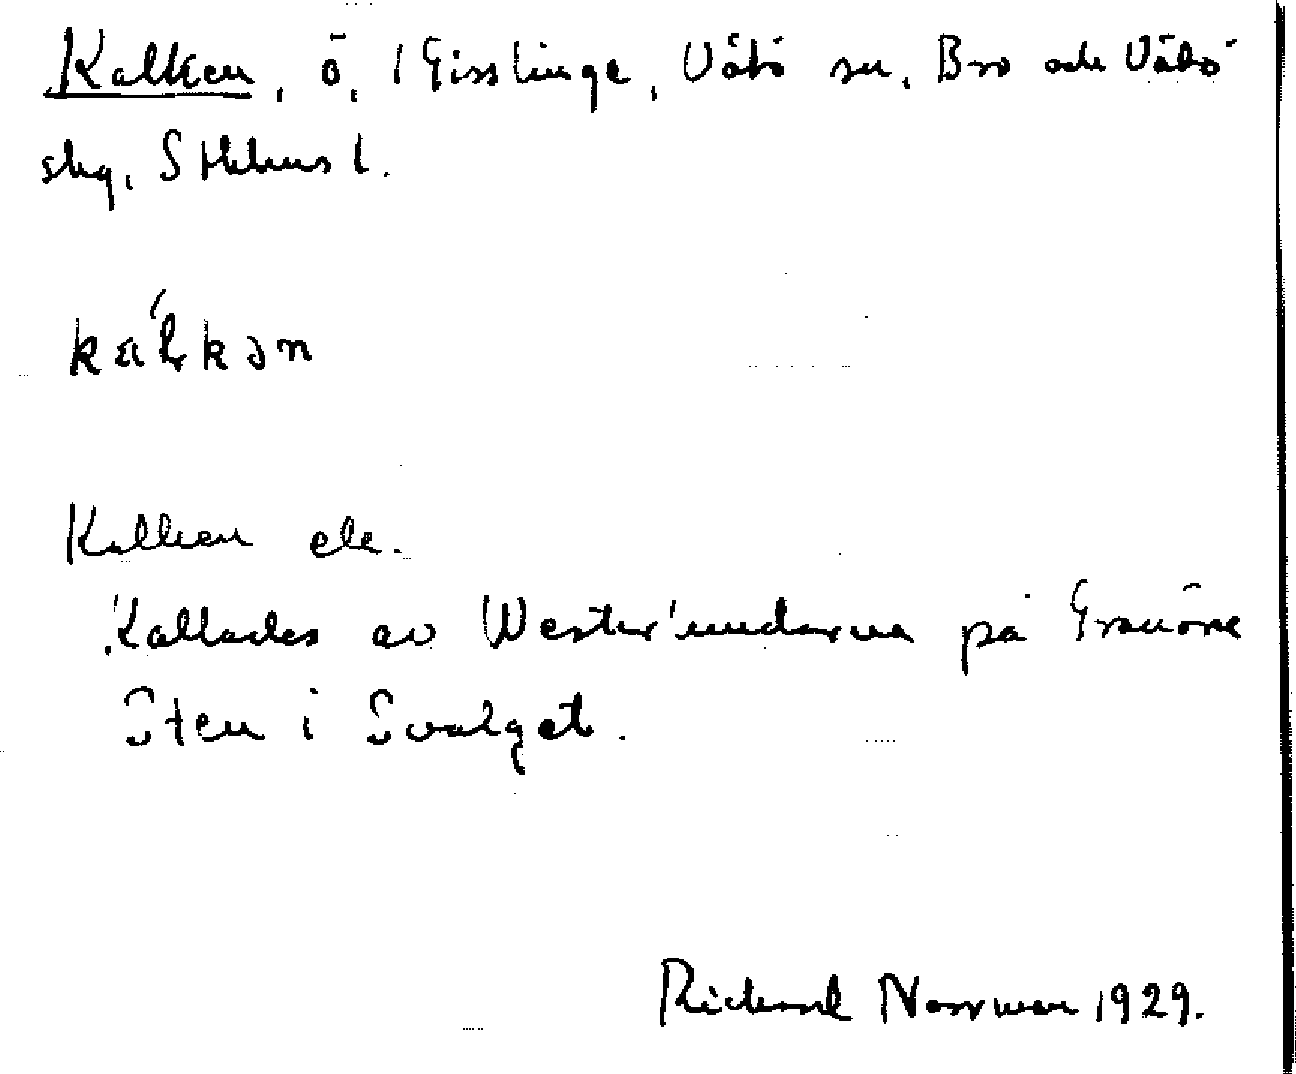 Kalken, ö, 1 Gisslinge, Vätö sn, Bro och Vätö
skg, Sthlms l.
kaĺkən
Kalken ek.
Kallades av på Granöre
Sten i Svalget.
Richard Norrman 1929.